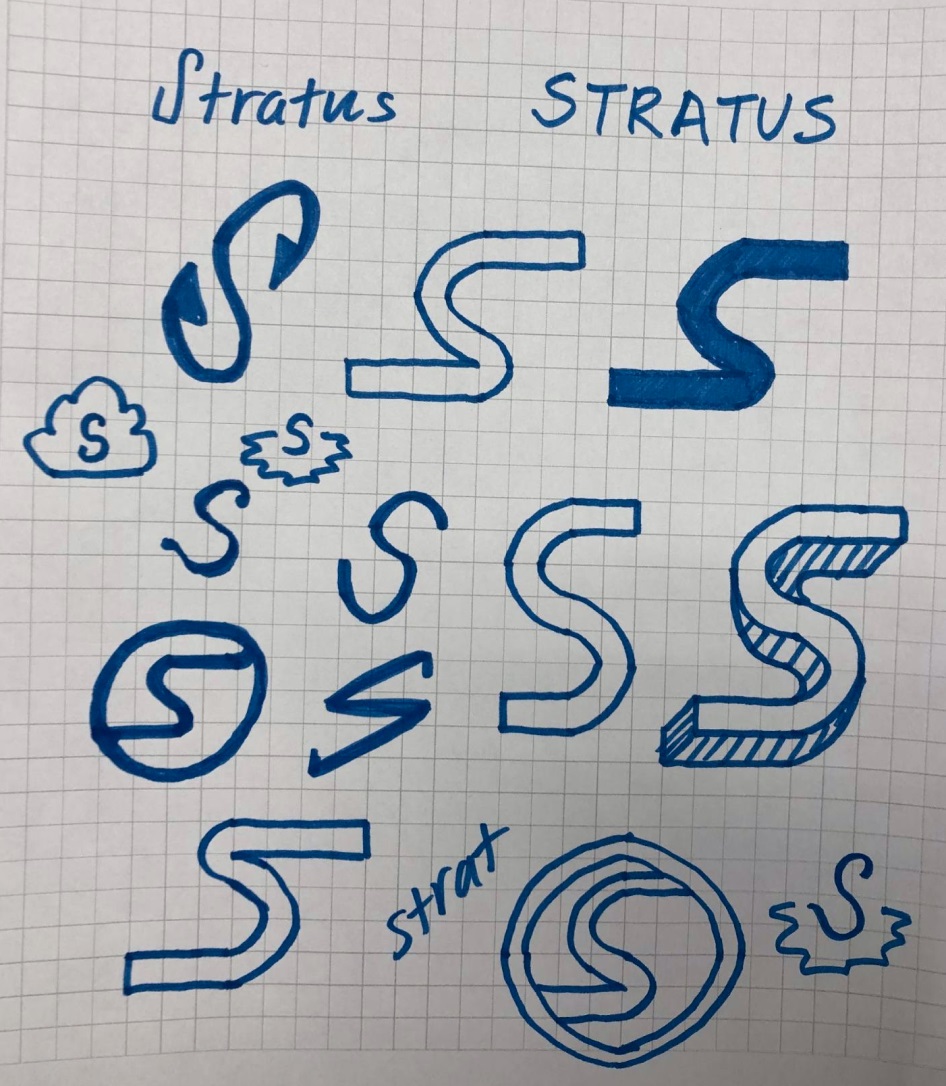 Stratus STRATUS
S S S
S S
S S S S
S S
S strat S S